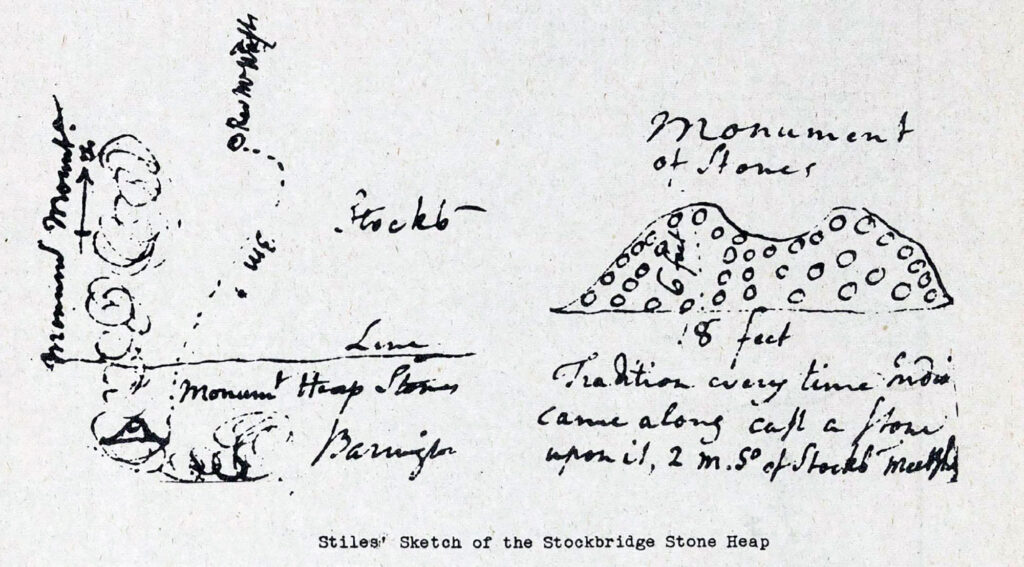 Rev Mr West
3m
Stockb
Line
Monumt Heap Stones
Barrington
Monument
of Stones
6 feet
18 feet
Tradition every time Indi
came along cast a stone
upon it, 2 m. So of Stockb
Stiles' Sketch of the Stockbridge Stone Heap